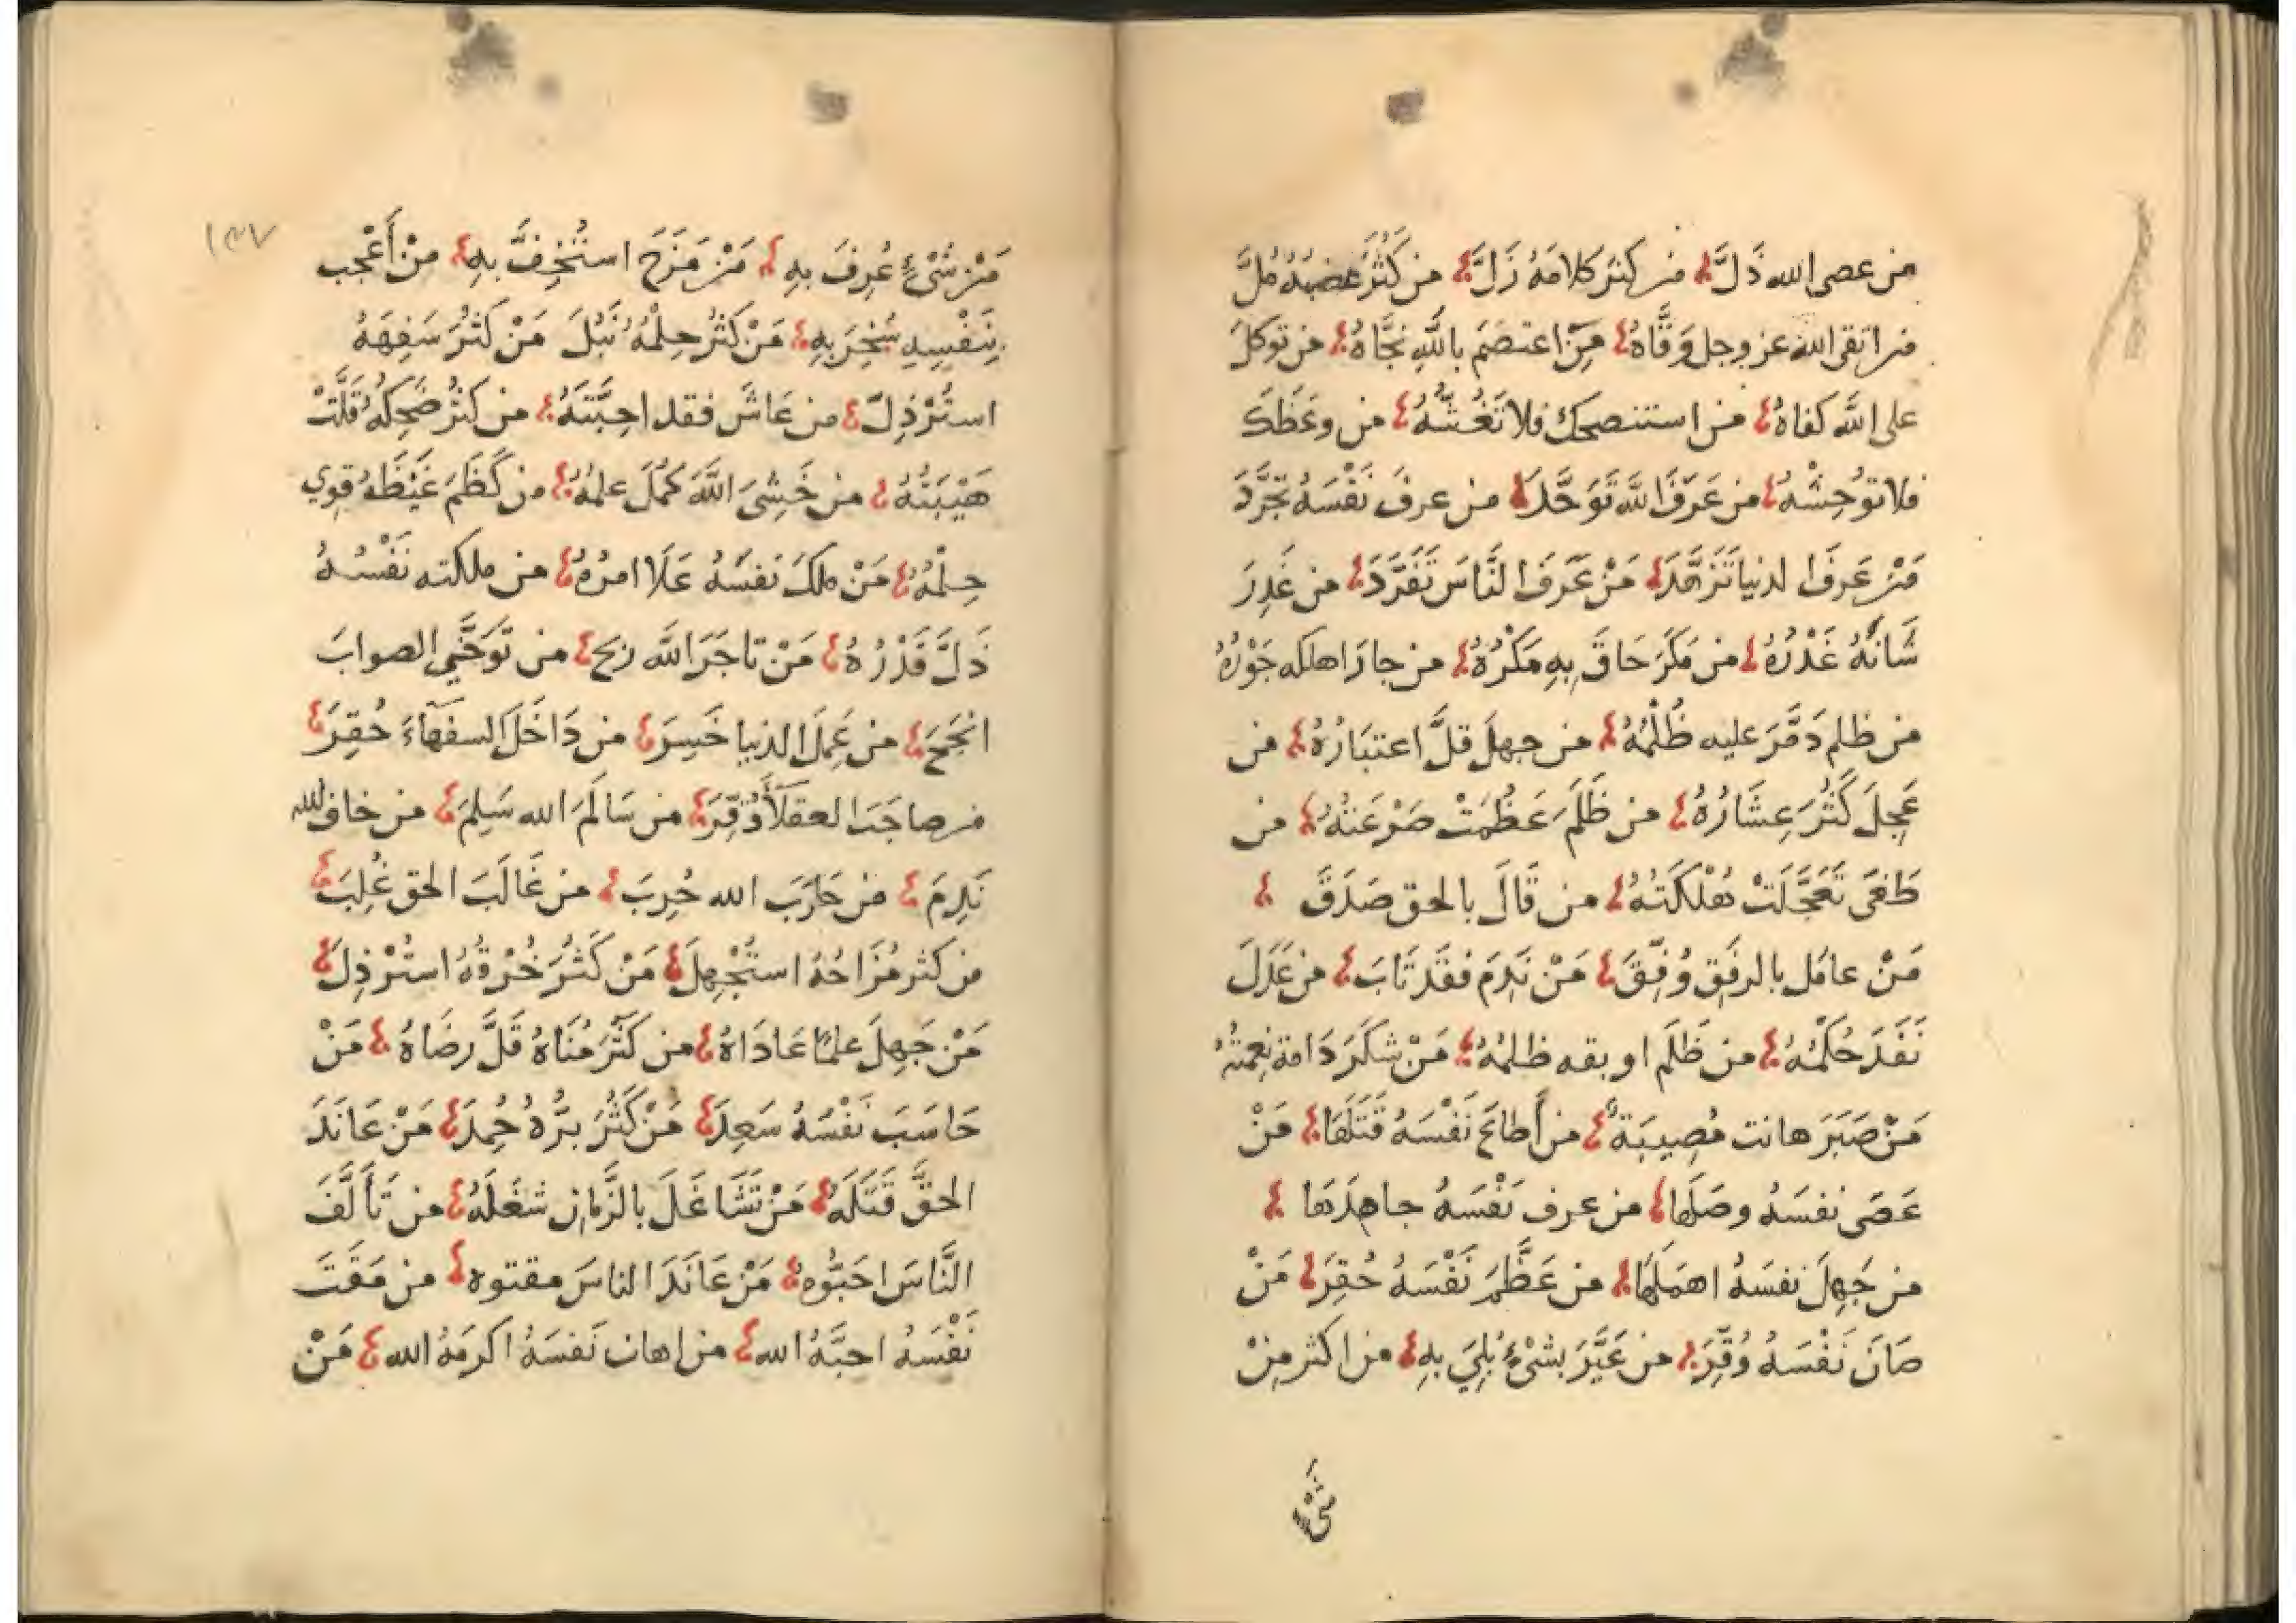 من عصى الله ذَلَّ من كثر كلامهُ زَلَّ من كَثُرَ غضبُهُ مُلَّ
من اتقى الله عز وجل وَقَّاهُ مَنِ اعتصَمَ بالله نجَّاهُ من توكلَ
على الله كفاهُ من استنصحك فلا تَغُشَّهُ من وعَظَكَ
فلا تُوحِشْهُ من عَرَفَ اللهَ تَوَحَّدَ من عرفَ نَفْسَهُ تجَرَّدَ
مَنْ عَرِفَ الدنيا تَزَهَّدَ مَنْ عَرَفَ النَّاسَ تَفَرَّدَ من غَدِرَ
شَانَهُ غَدْرُهُ من مَكَرَ حَاقَ بِهِ مَكْرُهُ من جارَ اهلكه جَوْرُهُ
من ظلم دَمَّرَ عليه ظُلْمُهُ من جهلَ قلَّ اعتبَارُهُ من
عَجِلَ كَثُرَ عِشَارُهُ من ظَلَمَ عَظُمَتْ صَرْعَتُهُ من
طَغَى تَعَجَّلَتْ هُلْكَتُهُ من قَالَ بالحق صَدَقَ
مَنْ عامَل بالرفق وُفِّقَ مَنْ نَدِمَ فقَد تَابَ من عَدَلَ
نَفَدَ حُكْمُهُ من ظَلَم اوبقه ظلمُهُ مَنْ شكَرَ دَامة نِعمتُهُ
مَنْ صَبَرَ هانت مُصِيبَةُ من أَطاعَ نَفْسَهُ قَتَلَهَا مَنْ
عَصَى نفسَهُ وصَلَها من عرف نَفْسَهُ جاهدَها
من جَهِلَ نفسَهُ اهمَلَهَا من عَظَّمَ نَفْسَهُ حُقِرَ مَنْ
صَانَ نَفْسَهُ وُقِّرَ من عَيَّرَ بشَىْءٍ بُلِيَ بهِ من اكثر مِنْ
شَىْءٍ
١٣٧
مَنْ شَىْءٍ عُرِفَ بهِ مَنْ مَزَحَ استُخِفَّ بهِ منْ أَعْجب
بِنَفْسِهِ سُخِرَ بهِ مَنْ كَثُرَ حِلْمُهُ نَبُلَ مَنْ كَثُرَ سَفِهَهُ
استُرْذِلَ من عَاشَ فقد احِبَّتَهُ من كثُرَ ضَحِكَهُ قَلَّتْ
هَيْبَتُهُ من خَشِىَ اللَّهَ كَمُلَ علمُهُ من كَظَمَ غَيْظَهُ قوي
حِلمُهُ مَنْ ملكَ نفسَهُ عَلَا امرُهُ من ملكته نَفْسُهُ
ذَلَّ قَدْرُهُ مَنْ تاجَرَ الله ربح من تَوَخَّى الصوابَ
انْجَحَ من عَمِلَ الدنيا خَسِرَ من دَاخَلَ السفهآءَ حُقِرَ
من صاحَبَ العقلآ وُقِّرَ من سَالَمَ الله سَلِمَ من خاف الله
نَدِمَ من حَارَبَ الله حُرِبَ من غَالَبَ الحق غُلِبَ
من كثر مُزَاحُهُ استُجْهِلَ مَنْ كَثُرَ خُرْقُهُ استُرْذِلَ
مَنْ جَهِلَ علمًا عَادَاهُ من كَثُرَ مُنَاهُ قَلَّ رِضَاهُ مَنْ
حَاسَبَ نَفْسَهُ سَعِدَ مَنْ كَثُرَ برُّهُ حُمِدَ مَنْ عَانَدَ
الحقَّ قَتَلَهُ مَنْ تَشَاغَلَ بالزَّمان شغَلَهُ من تَأَلَّفَ
النَّاسَ احَبُّوه مَنْ عَانَدَ الناسَ مقتوه من مَقَتَ
نَفْسَهُ احبَّهُ الله من اهان نَفسَهُ اكرمَهُ الله مَنْ